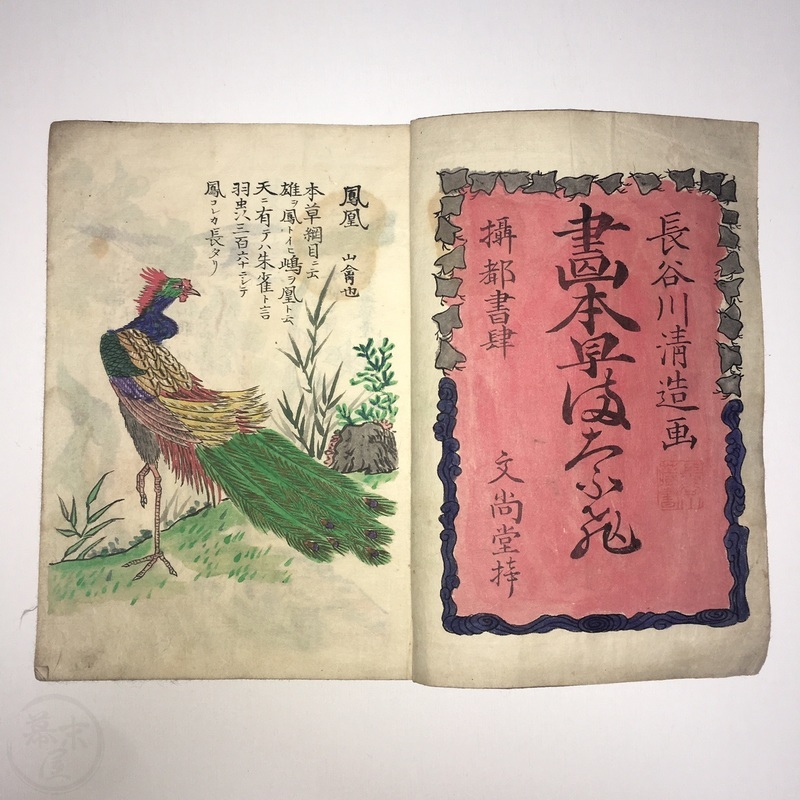 長谷川清造画
畫本早満奈飛
攝都書肆 文尚堂梓
鳳凰 山禽也
本草綱目ニ云
雄ヲ鳳トイヒ ヲ凰ト云
天ニ有テハ朱雀ト言
羽虫 三百六十ニシテ
鳳コレカ長タリ
幕末屋